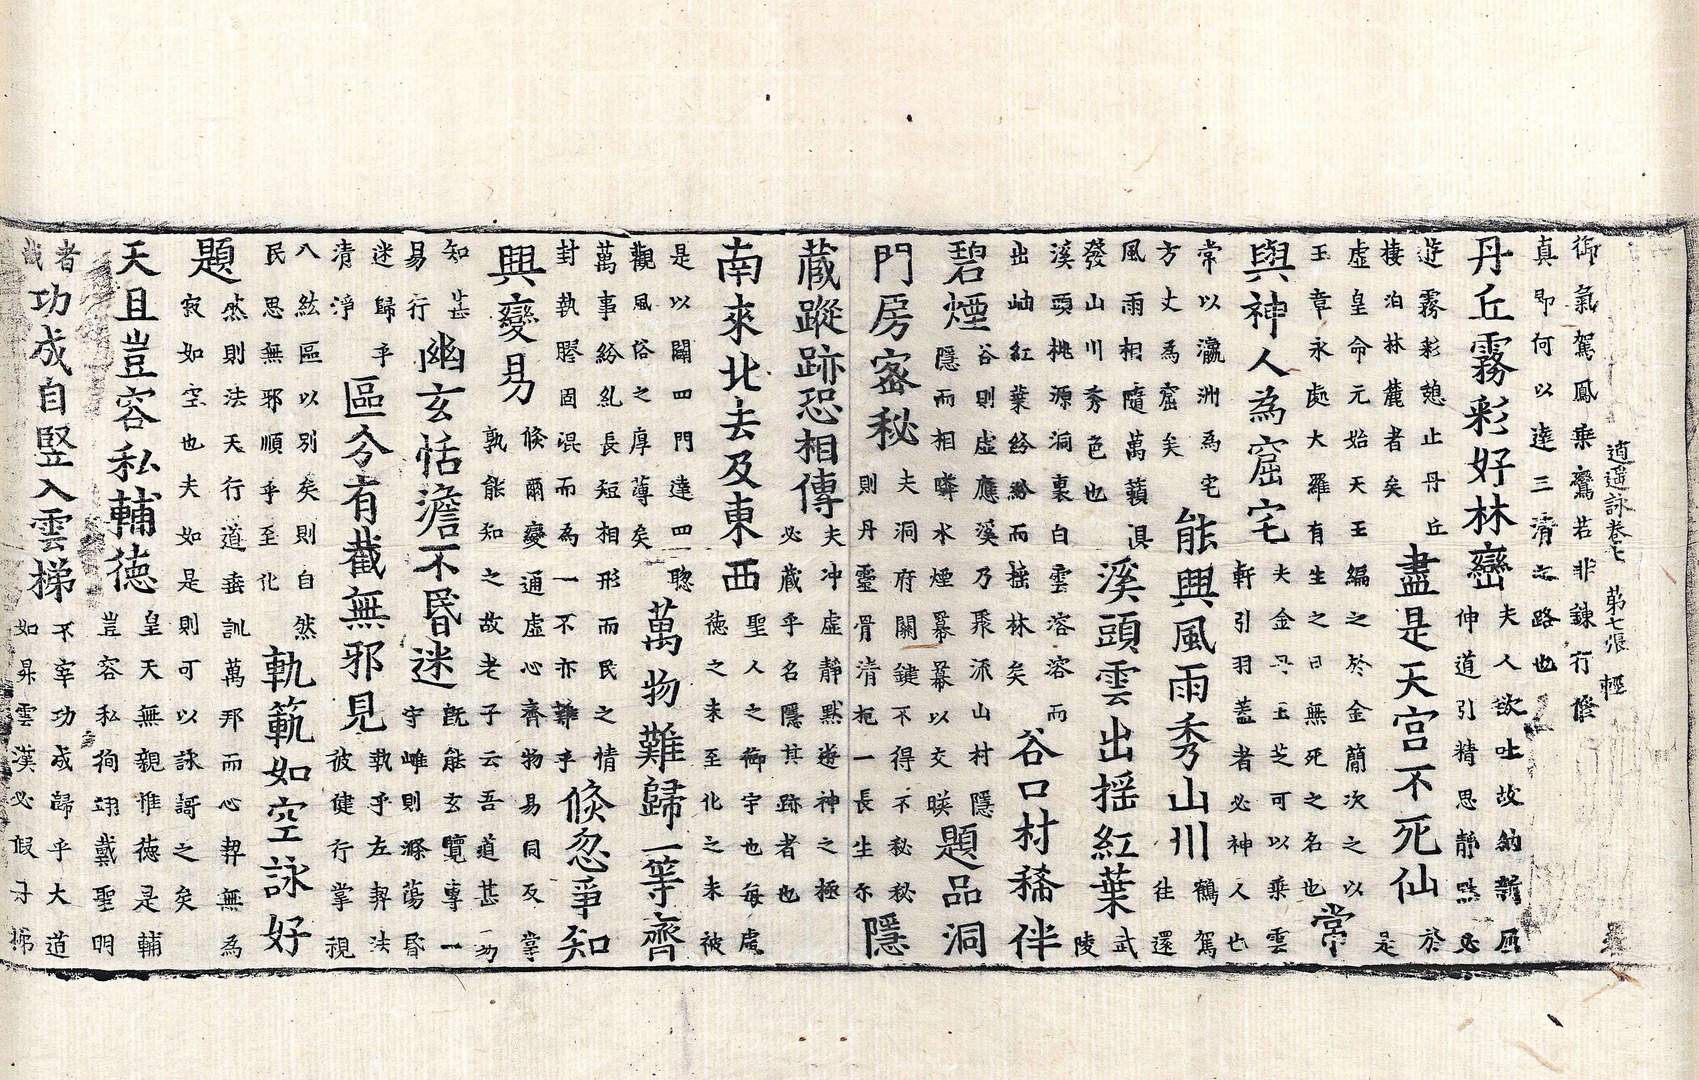 逍遥詠卷七　第七張　輕
御氣駕鳳乘鸞若非鍊行修
真即何以達三清之路也
丹丘霧彩好林巒夫人欲吐故納新所伸道引精思靜默必
遊霧彩憩止丹丘棲泊林麓者矣盡是天宮不死仙於是
虛皇命元始天王編之於金簡次之以玉章永處大羅有生之曰無死之名也常
與神人為窟宅夫金丹玉芝可以乘雲軒引羽蓋者必神人也
常以瀛洲為宅方丈為窟矣能興風雨秀山川鶴駕往還
風雨相隨萬籟俱發山川秀色也溪頭雲出摇紅葉武陵
溪頭桃源洞裏白雲溶溶而出岫紅葉紛紛而摇林矣谷口村稀伴
碧煙谷則虛應溪乃衆派山村隱隱而相嶙水煙羃羃以交暎題品洞
門房密秘夫洞府關鍵不得不秘秘則丹靈骨清抱一長生尓隱
藏蹤跡恐相傳夫沖虛靜默遊神之極必藏乎名隱其跡者也
南來北去及東西聖人之御宇也每處德之未至化之未被
是以闢四門達四聦觀風俗之厚薄矣萬物難歸一等齊
萬事紛糺長短相形而民之情封執膠固混而為一不亦難乎倐忽爭知
興變易倐爾變通虛心齊物易同反掌孰能知之故老子云吾道甚
知甚易行幽玄恬澹不昬迷既能玄覽專一守雌則滌蕩昬
迷歸乎清淨區分有截無邪見執乎左契法彼健行掌視
八紘區以別矣則自然民思無邪順乎至化軌範如空詠好
題然則法天行道垂訓萬邦而心契無為寂如空也夫如是則可以詠謌之矣
天且豈容私輔德皇天無親惟德是輔豈容私徇翊戴聖明
者哉功成自竪入雲梯不宰功成歸乎大道如昇雲漢必假于梯